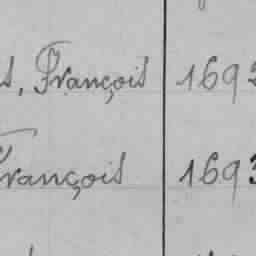 François 169
François 1693